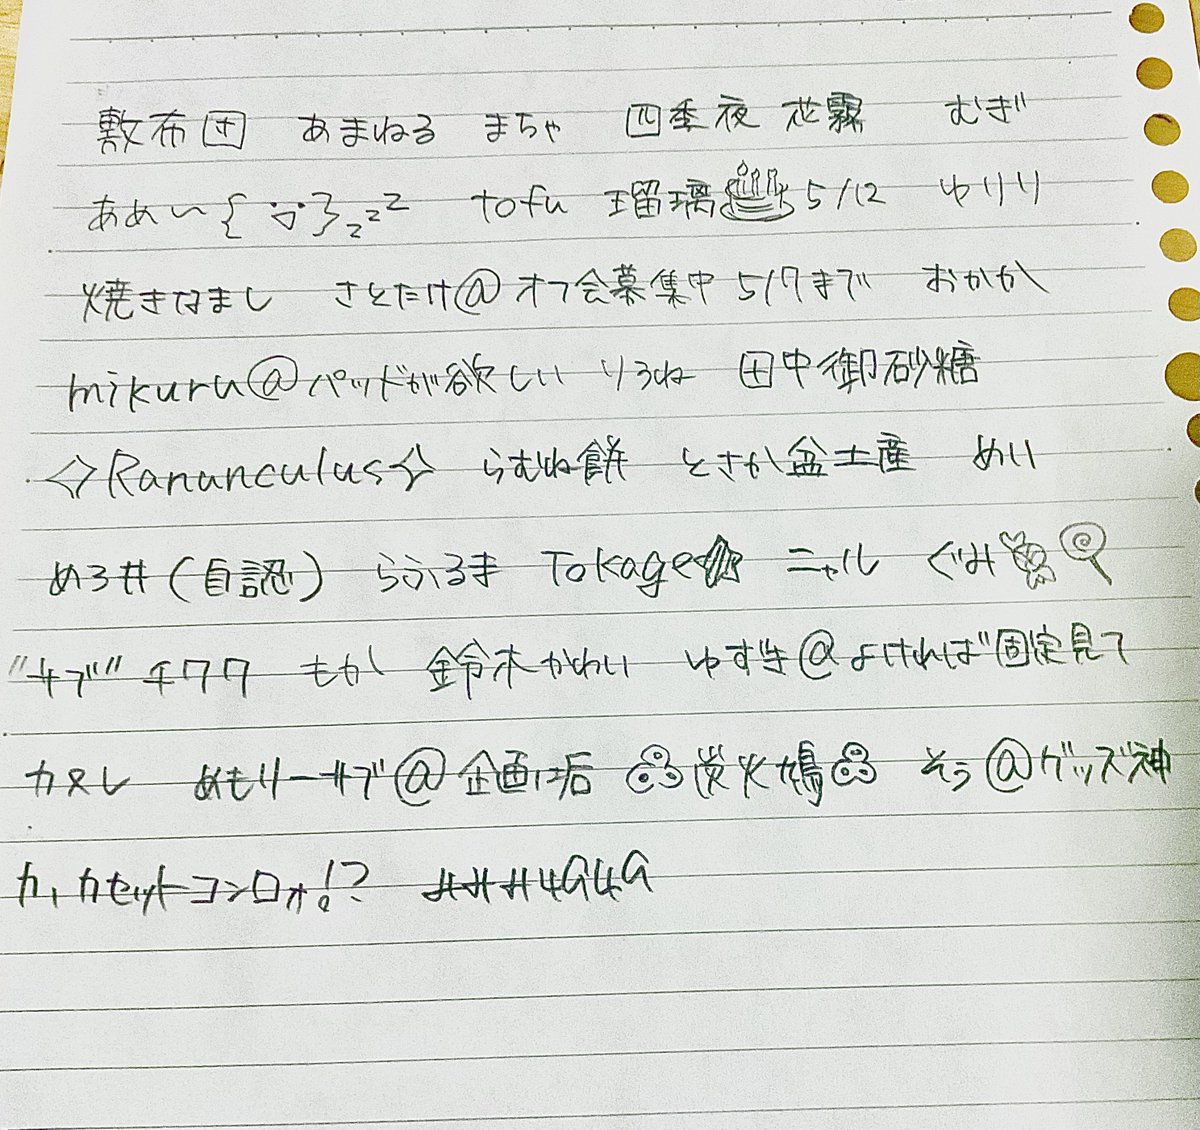 敷布団 あまねる まちゃ 四季夜 花霧 むぎ
ああい〜{ ᐡ }zzz tofu 瑠璃🎂5/12 ゆりり
焼きなまし さとたけ@オフ会募集中5/17まで おかか
mikuru@パッドが欲しい りろね 田中御砂糖
✧Rananculus✧ らむね餅 とさか盆土産 めい
めろ井(自認) らふるま Tokage ニャル ぐみ🍬🍭
"サブ"チワワ もか 鈴木かわい ゆずき@よければ固定見て
カヌレ めもりーサブ@企画垢 炭火鳩 そう@グッズ神
カ、カセットコンロォ!? ###4949